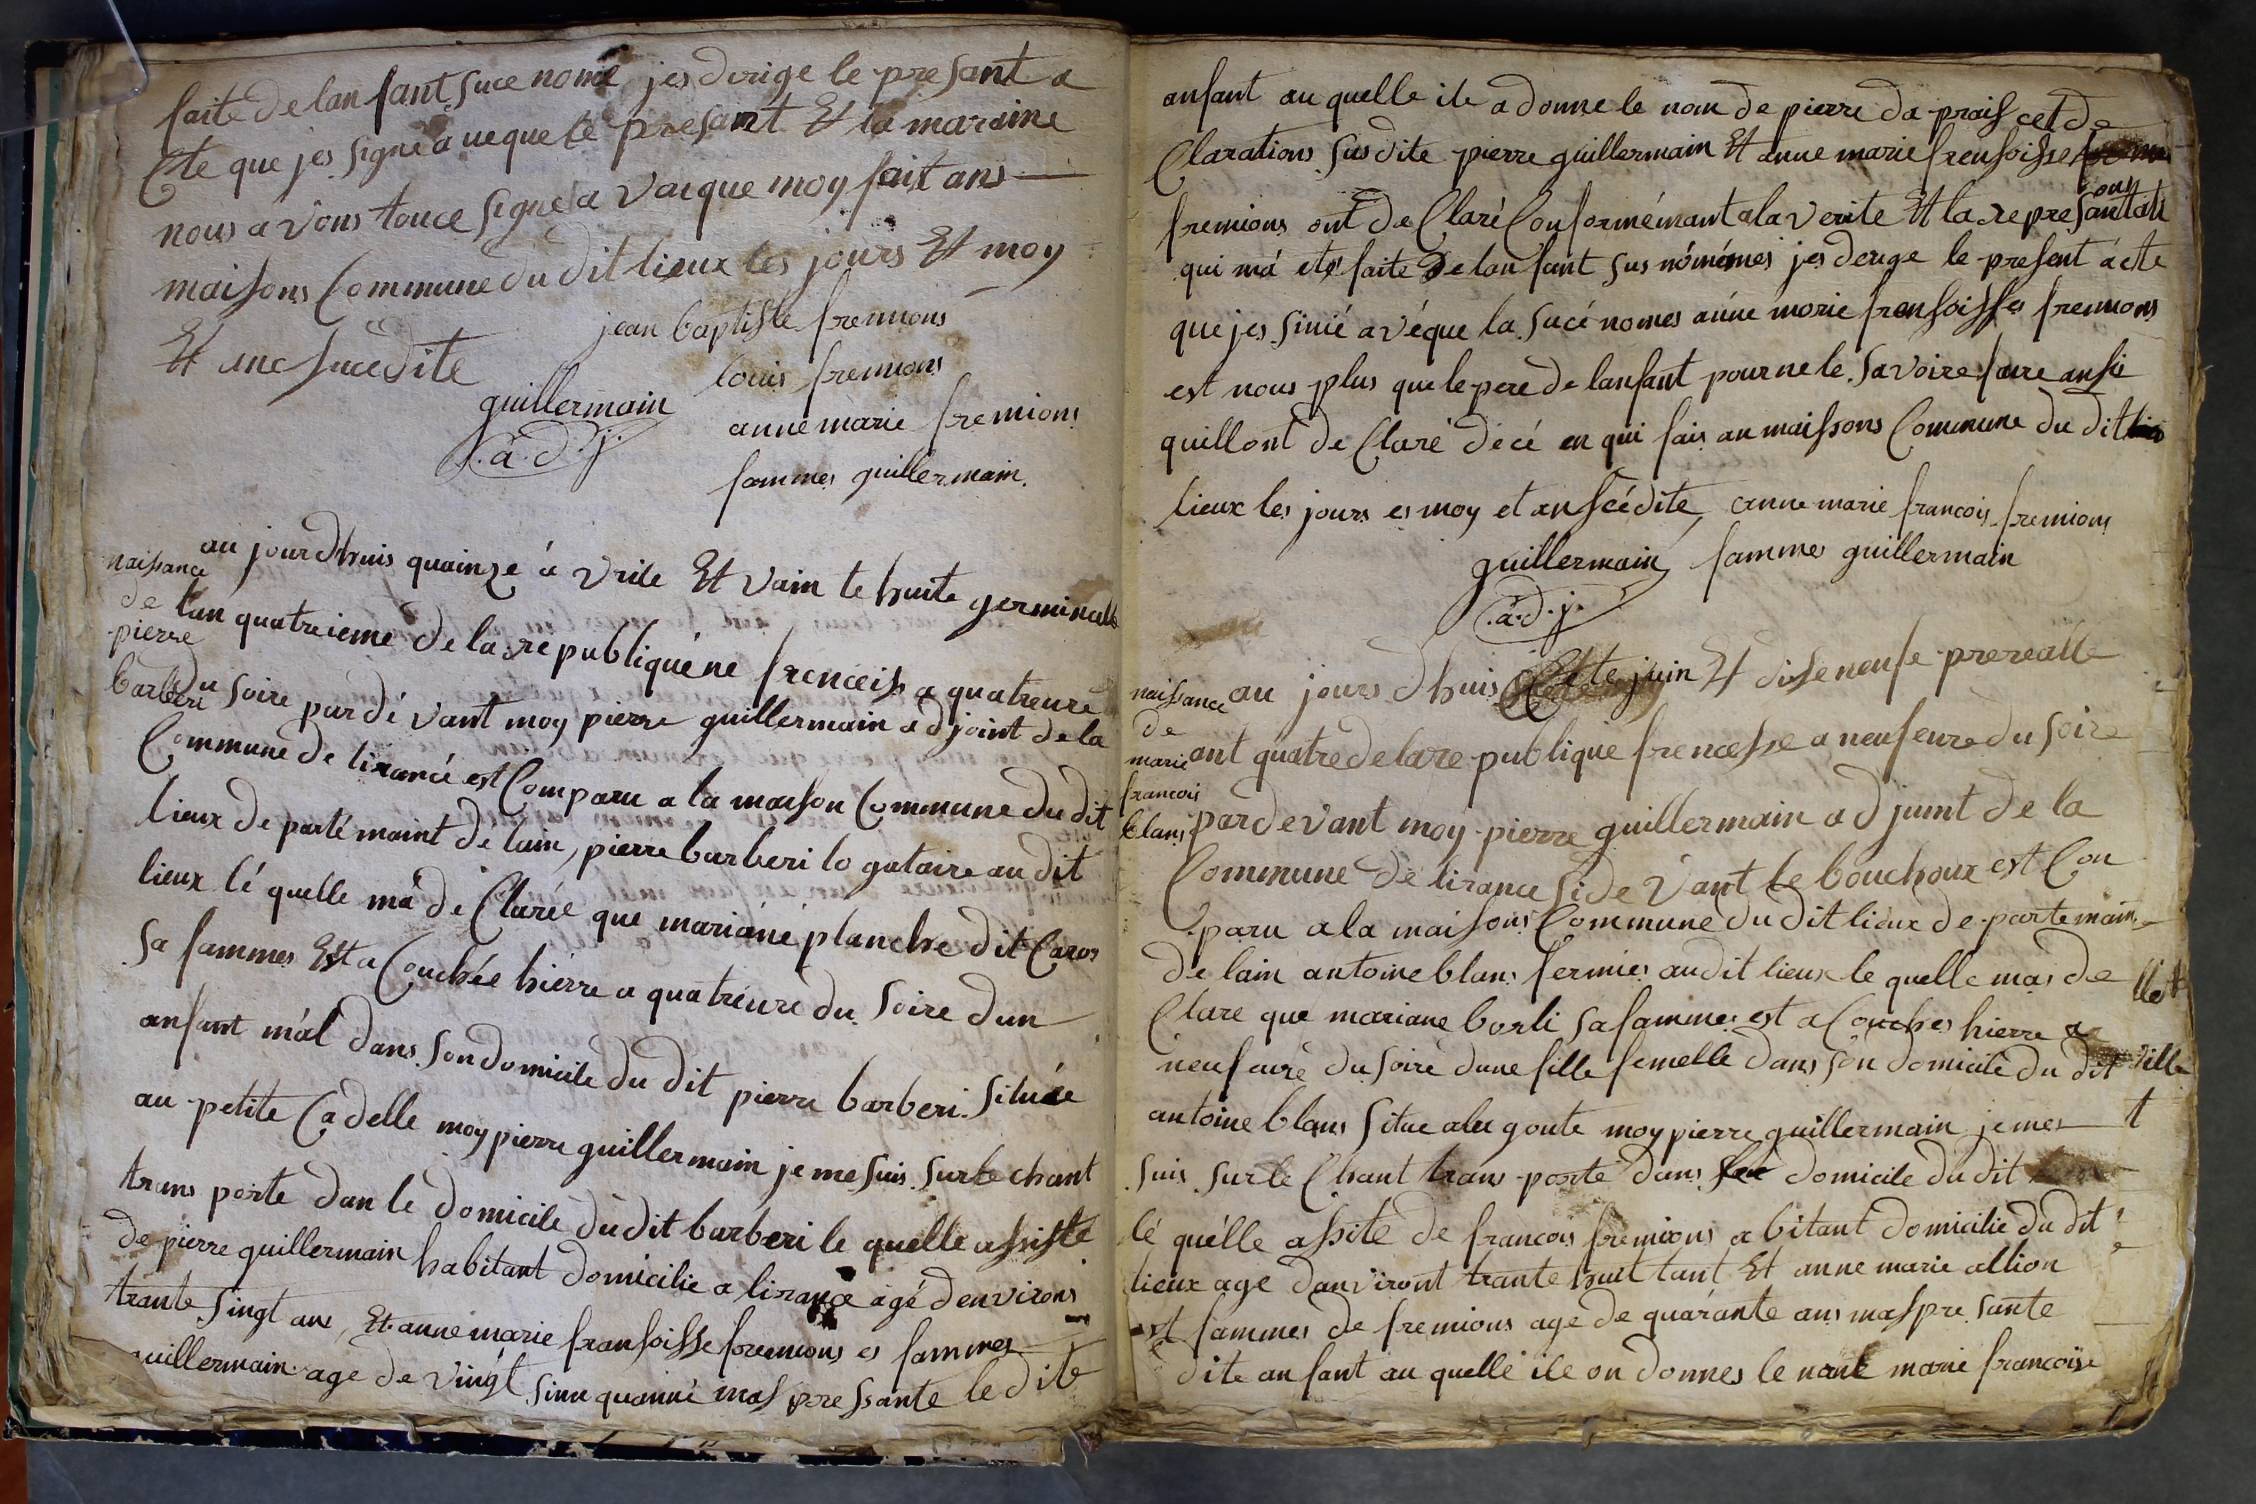 faite de lan fant suce nomé jes dorige le presant a
Cte que jes signé a veque le presant Et la maraine
nous avons touce signé a vacque moy fait ans
maisons Commune du dit lieux les jours Et moy
Et anc sucedite
jean baptiste fremions
louis fremions
guillermain
anne marie fremions
.a.d.j.
fammes guillermain.
naissance
de
pierre
barberi
au jourdhuis quainze á vrile Et vain te huite germinalle
lan quatreieme de la republiquéne frenceis a quatreure
du soire par dé vant moy pierre guillermain adjoint de la
Commune de liranci est Comparu a la maison Commune du dit
lieux de parté maint de lain, pierre barberi lo gataire au dit
lieux lé quelle má de Clarée que mariáne planche dit Caros
sa fammes Est a Couchée hiérre a quatréure du soire dun
anfant mál dans son domicile du dit pierre barberi. située
au petite Cadelle moy pierre guillermain je me suis sur le chant
trans porte dan le domicile du dit barberi le quelle assiste
de pierre guillermain habitant domicilie a lirance agé denvirons
trante singt ans, Et anne marie fransoisse fremions es fammes
guillermain age de vingt sinn quanné mas pressante le dite
anfant au quelle ile a donne le nom de pierre da prais cet de
Clarations sus dite pierre guillermain Et anne marie frensoisse
fremions ont de Claré Conformémant a la verite Et la represantati
ons
qui má eté faite de lan fant sus nómémes jes derige le present ácte
que jes sinié avéque la sucé nomes anne marie fransoisses fremions
est nous plus que le pere de lanfant pour ne le savoire faire ansi
quillont de Claré décé en qui fais au maissons Commune du dit
lieux les jours es moy et an scédite, anne marie francois fremions
guillermain fammes guillermain
.a.d.j.
naissance
de
marie
francois
blans
au jours dhuis sete juin Et dise neufe prereálle
ant quatre de la re publique francesse a neuf eure du soire
par devant moy pierre guillermain ad juint de la
Commune de lirance side vant le bouchoux est Con
paru a la maisons Commune du dit lieux de partemain
de lain antoine blans fermies au dit lieux le quelle mas de
Clare que mariane borli sa famme est a Couches hierre a
neuf eure du soire dune fille femelle dans son domicile du dit
antoine blans situe a la goute moy pierre guillermain je mes
suis sur le Chant trans porté dans domicile du dit
lé quélle assite de francois fremions abitant domicilie du dit
lieux age danviront trante huit tant Et anne marie allion
est fammes de fremions age de quarante ans mas presante
dite anfant au quelle ile on donnes le nom marie françoise